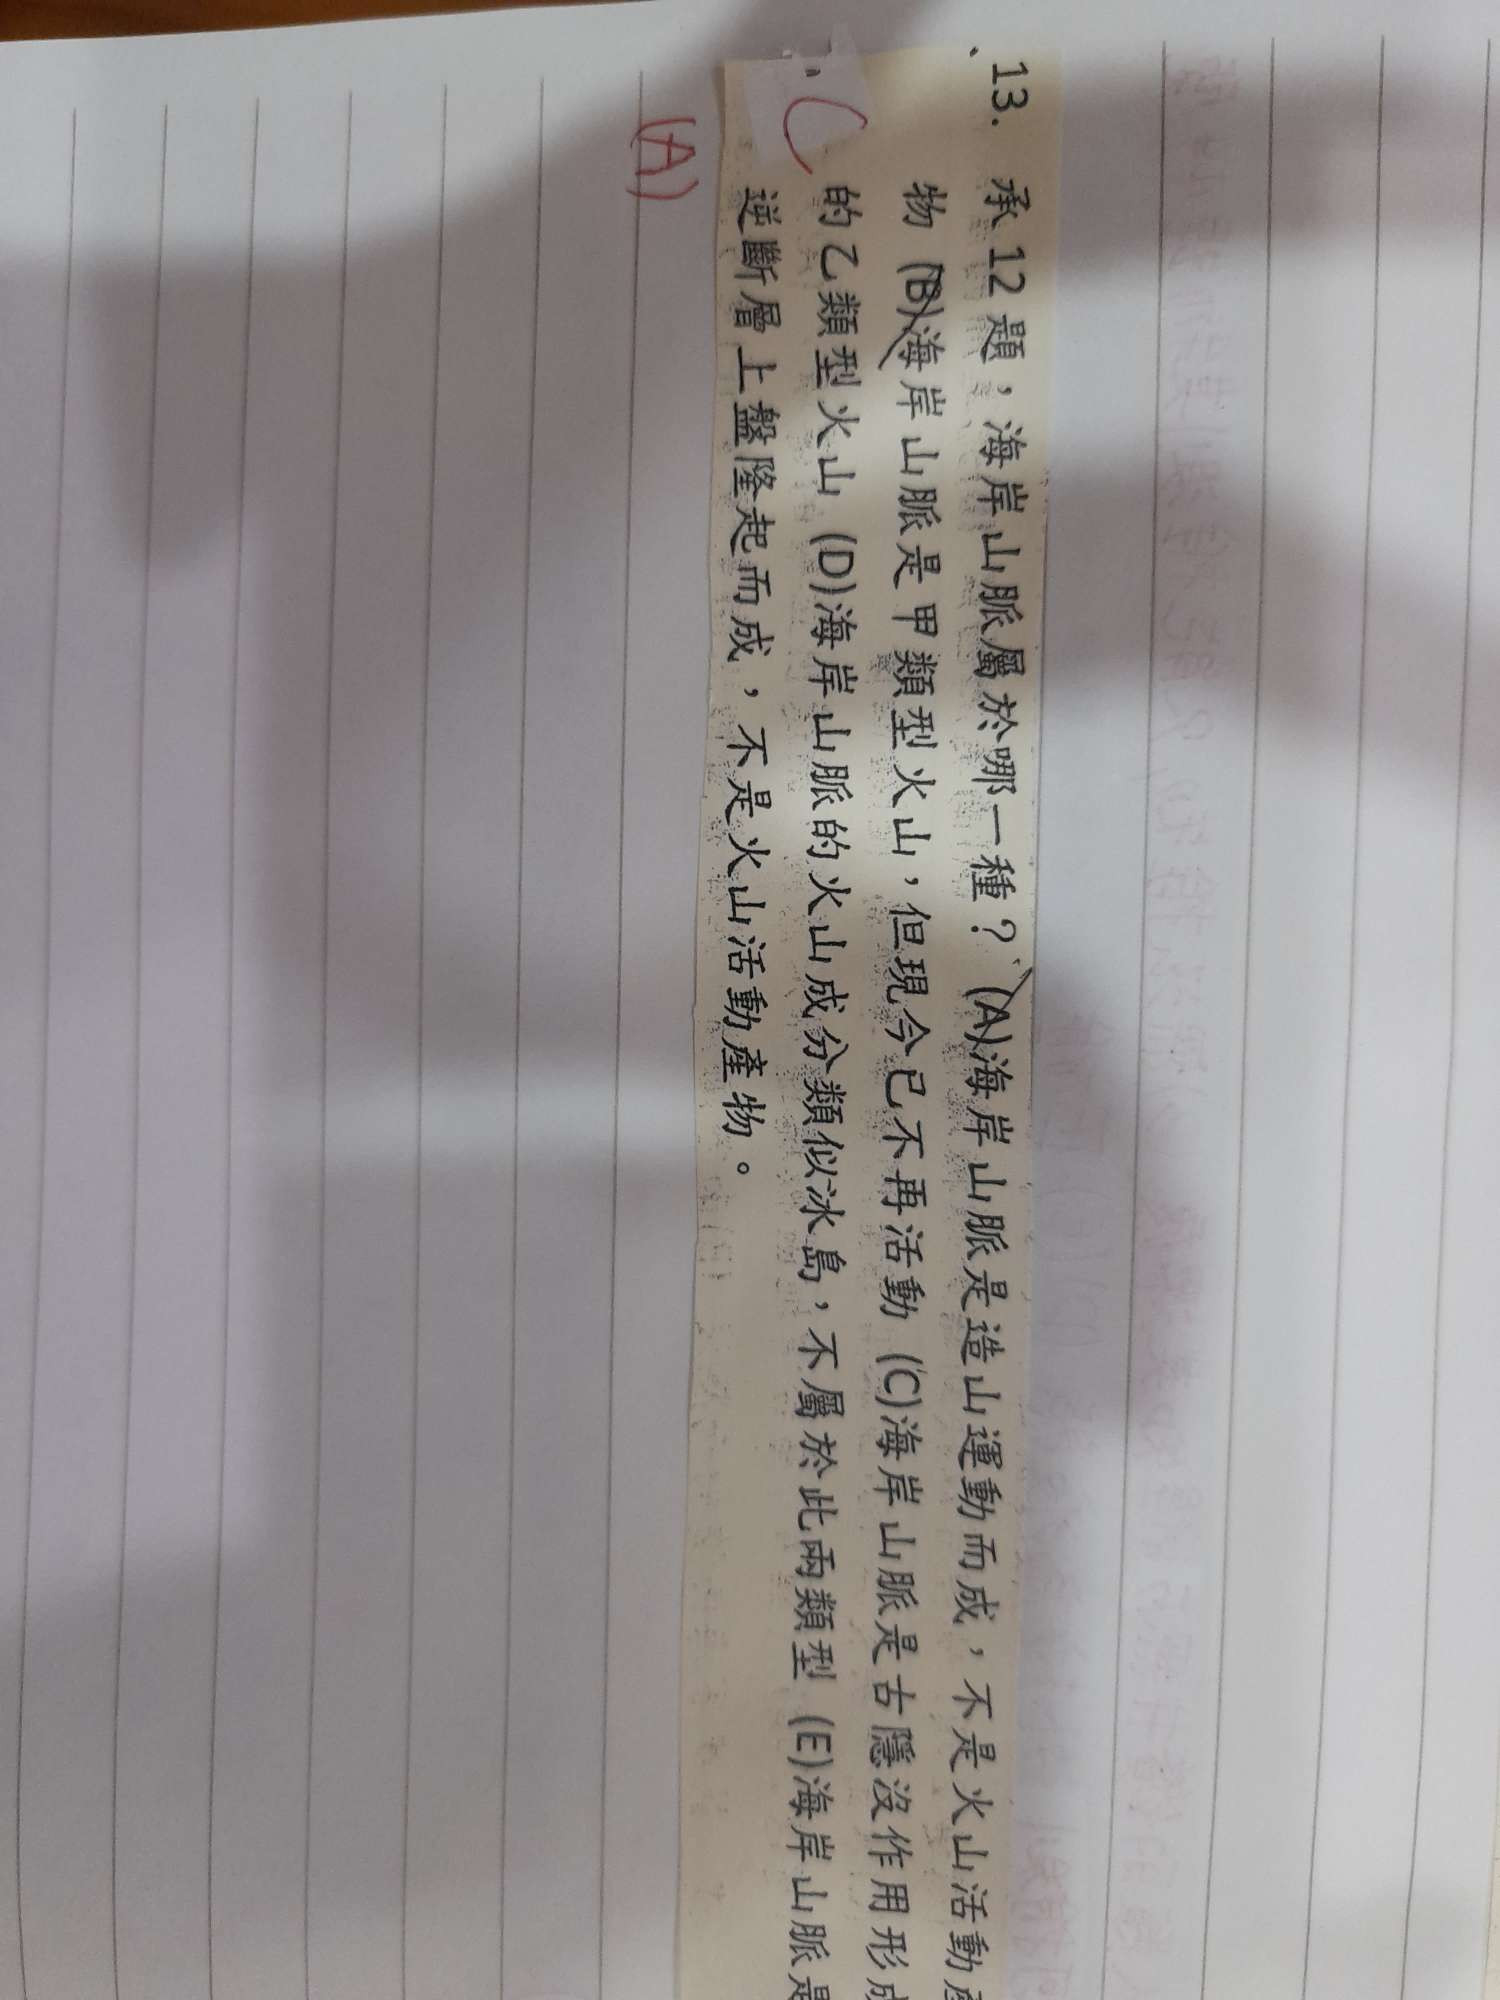 13. 承 12 題，海岸山脈屬於哪一種？(A)海岸山脈是造山運動而成，不是火山活動產
物 (B)海岸山脈是甲類型火山，但現今已不再活動 (C)海岸山脈是古隱沒作用形成
的乙類型火山 (D)海岸山脈的火山成分類似冰島，不屬於此兩類型 (E)海岸山脈是
逆斷層上盤隆起而成，不是火山活動產物。
C
(A)